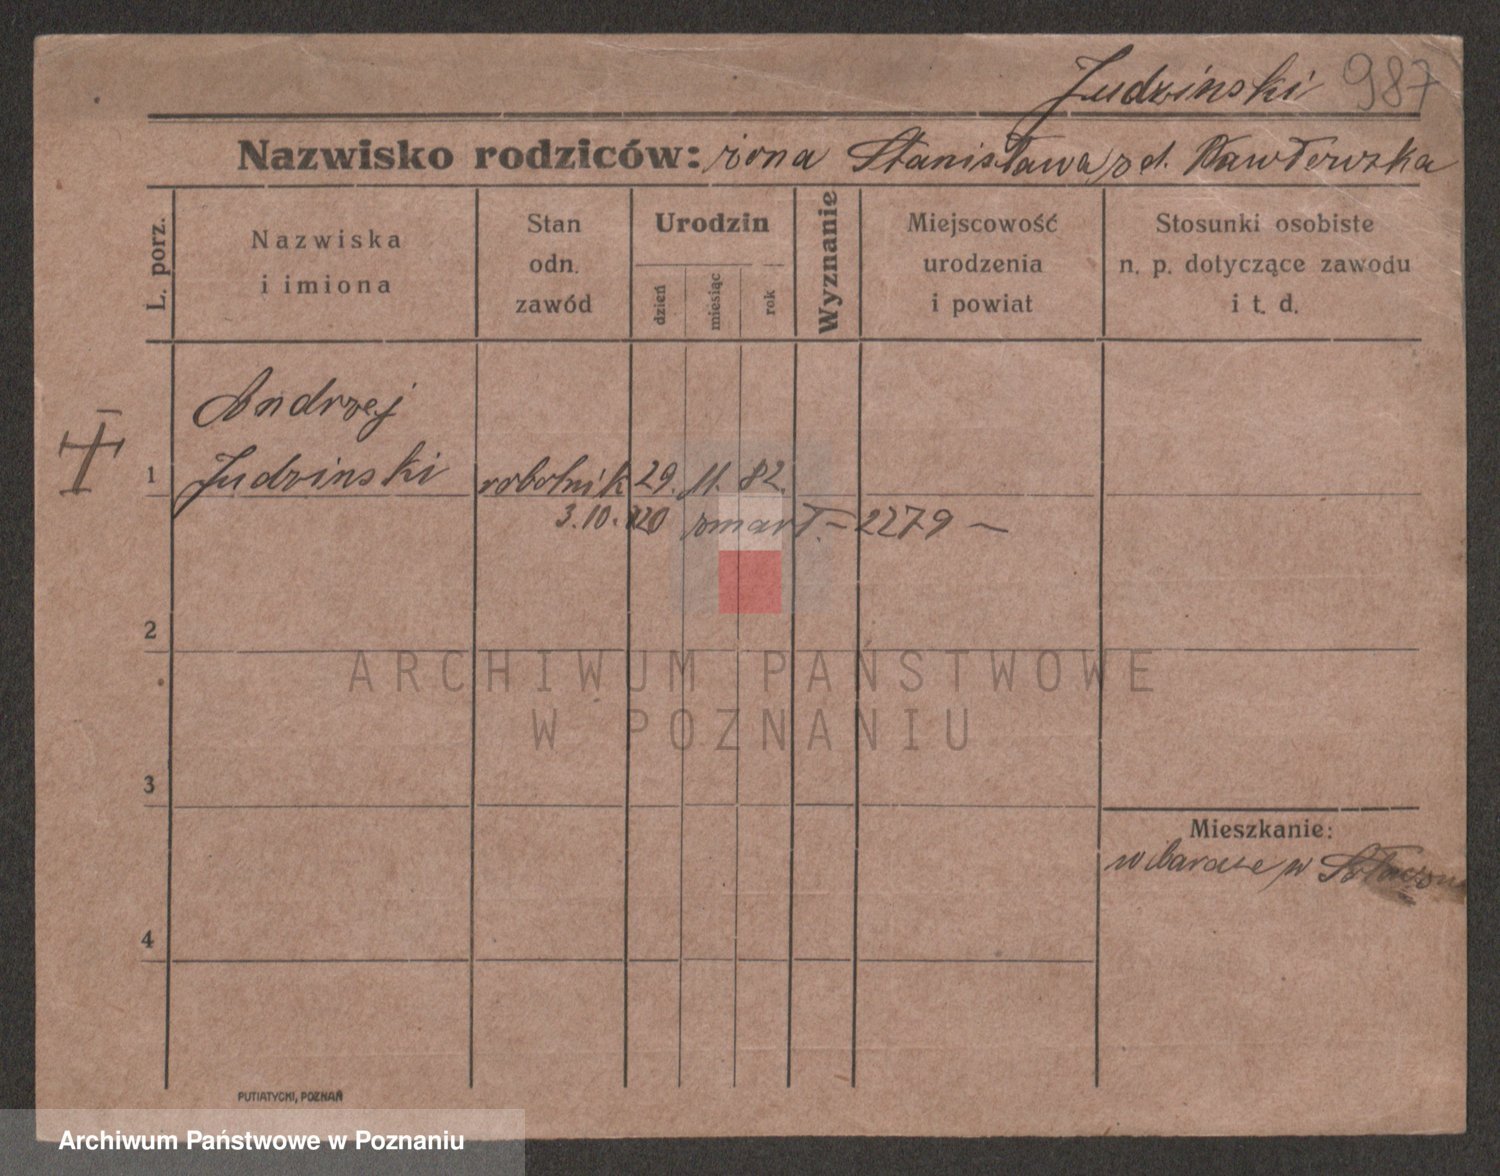 Judzinski 987
Nazwisko rodziców: żona Stanisława zd. Pawłewska
L. porz.
Nazwiska
i imiona
Stan
odn.
zawód
Urodzin
dzień
miesiąc
rok
Wyznanie
Miejscowość
urodzenia
i powiat
Stosunki osobiste
n. p. dotyczące zawodu
i t. d.
Andrzej
1 Judzinski robotnik 29. 11. 82.
3.10. zmarł. – 2279 –
2
ARCHIWUM PAŃSTWOWE
W POZNANIU
3
Mieszkanie:
w barace w
4
PUTIATYCKI, POZNAŃ
Archiwum Państwowe w Poznaniu